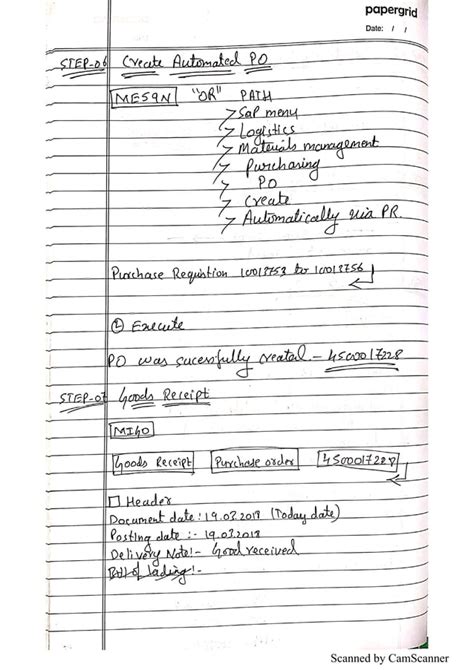 papergrid
Date: / /
STEP-06 Create Automated PO
ME59N "OR" PATH
> SAP menu
> Logistics
> Materials management
> Purchasing
> PO
> Create
> Automatically via PR.
Purchase Requistion 10013753 to 10013756
Execute
PO was sucessfully created - 4500017228
STEP-07 Goods Receipt
MIGO
Goods Receipt Purchase order 4500017228
Header
Document date : 19.03.2018 (Today date)
Posting date :- 19.03.2018
Delivery Note :- Good received
Bill of lading :-
Scanned by CamScanner